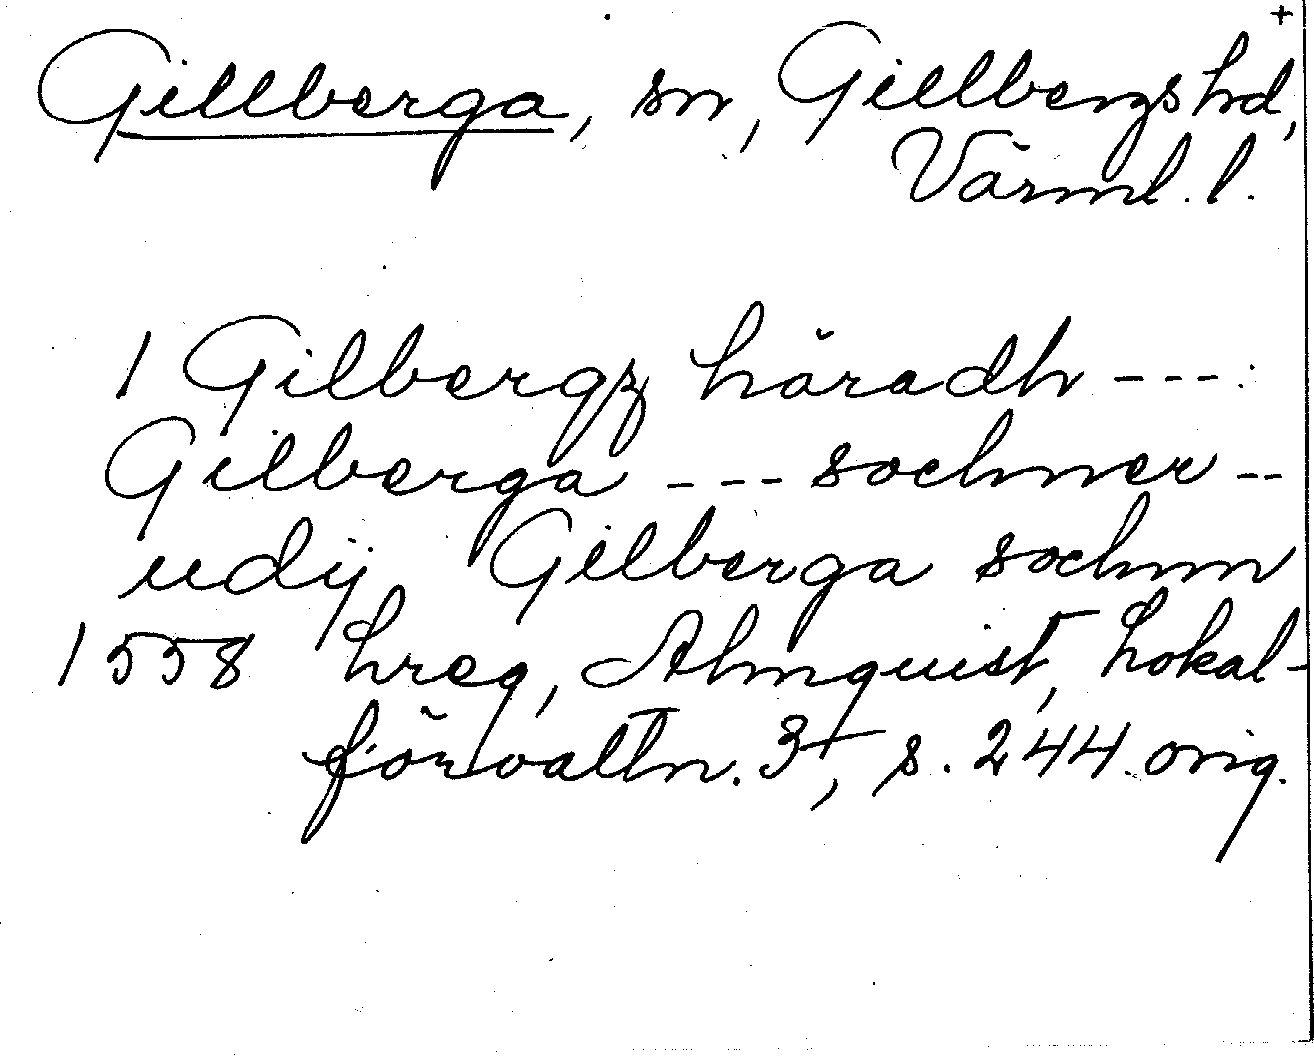 +
Gillberga, sn, Gillbergs hd,
Värml. l.
I Gilbergz häradh ---:
Gilberga --- sochner --
udij Gilberga sochnn
1558 hreg, Almquist, Lokal-
förvaltn. 3, s. 244 orig.